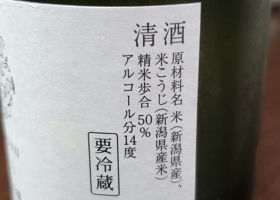 清酒
原材料名 米（新潟県産）、
米こうじ（新潟県産米）
精米歩合 50%
アルコール分14度
要冷蔵